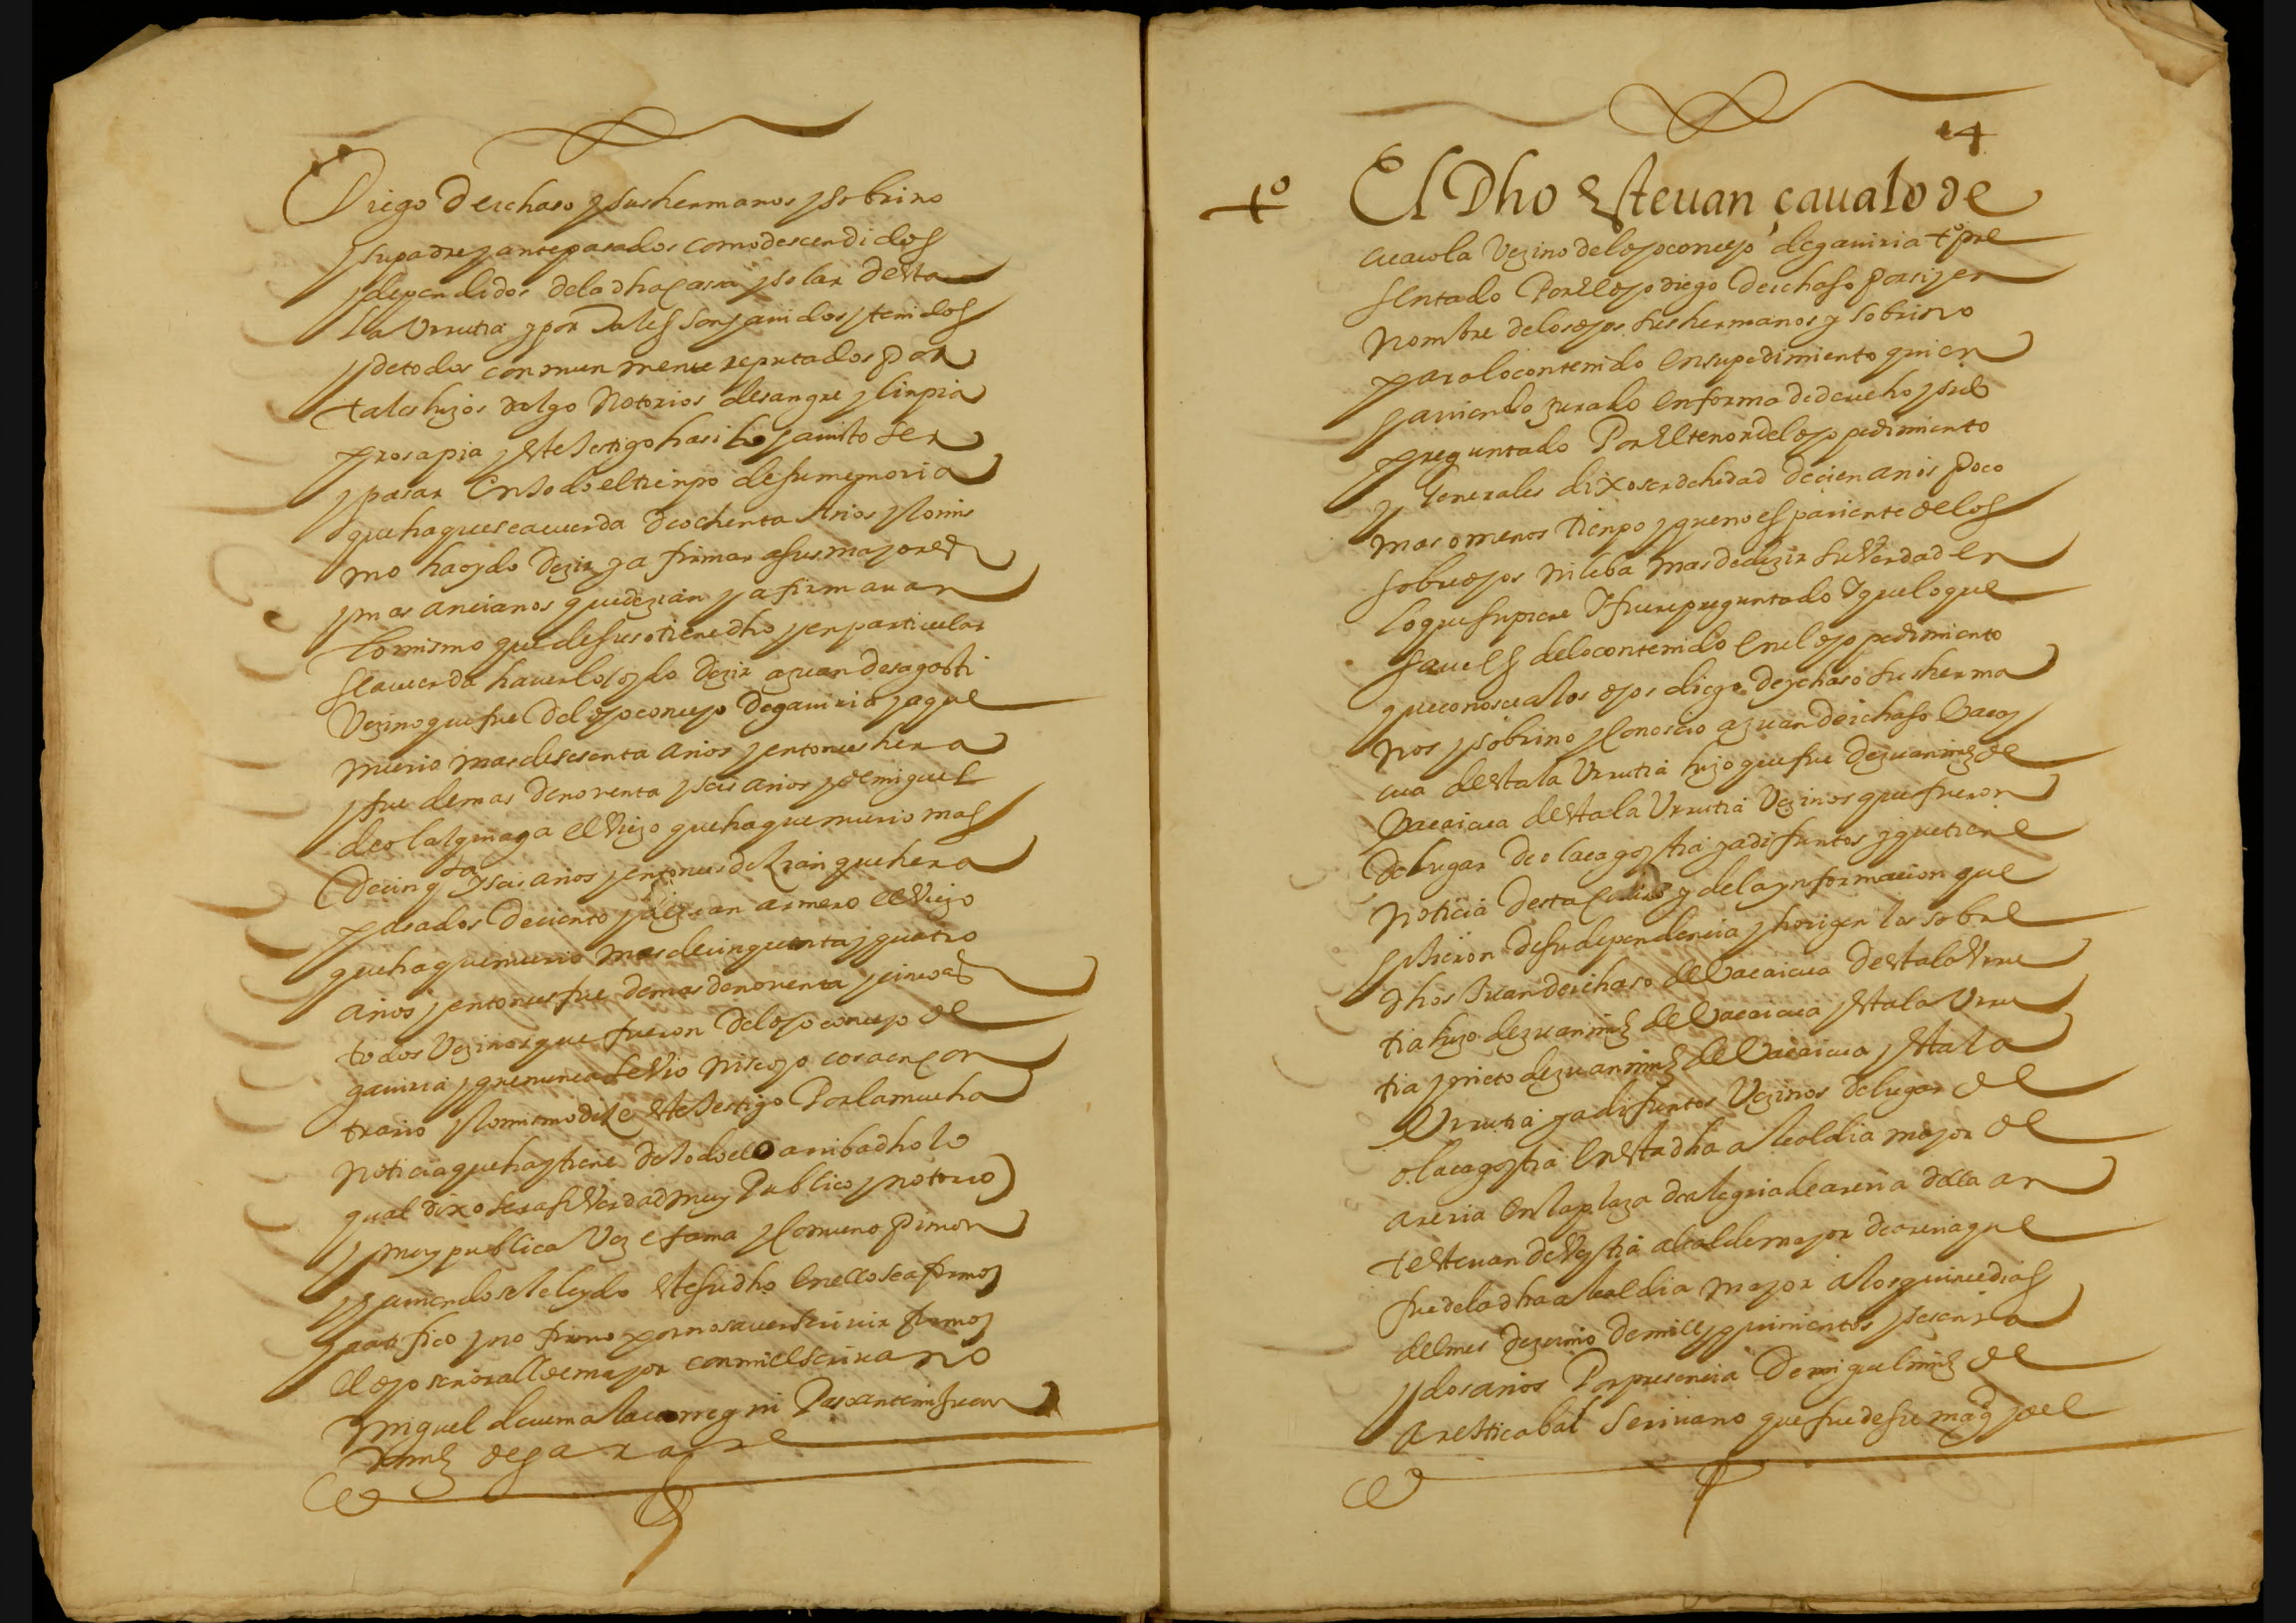 Diego de ichaso y sus hermanos y sobrino
y su padre y antepasados como descendidos
y dependidos de la dha cassa y solar de Vta
la Vrrutia y por tales son y auidos y tenidos
y de todos conmunmente reputados por
tales hijos dalgo notorios de sangre y linpia
prosapia y este testigo ha sido y a visto ser
y pasar en todo el tienpo de su memoria
que ha que se acuerda de ochenta años y lo mis
mo ha oydo dezir y afirmar a sus mayores
y mas ancianos que dezian y afirmauan
lo mismo que de suso tiene dho y en particular
se acuerda hauerlo oydo dezir a juan de sagasti
Vezino que fue del dho concejo de gauiria y a que
murio mas de sesenta años y entonces hera
y fue de mas de nouenta y seis años y de miguel
de olalquiaga el Viejo que ha que murio mas
de cinqta y seis años y entonces dezian que hera
pasados de ciento y a juan armero el Viejo
que ha que murio mas de cinquenta y quatro
años y entonces fue de mas de nouenta y cinco as
todos Vezinos que fueron del dho concejo de
gauiria y que nunca se Vio ni se oyo cosa en con
trario y lo mismo dize este testigo Por la mucha
noticia que ha y tiene de todo ello arriba dho lo
qual dixo ser asi Verdad muy Publico y notorio
y muy publica Voz e fama y comun opinion
y hauiendosele leydo este su dho en ello se afirmo y
ratifico y no firmo por no sauer scriuir firmo
el dho señor allde mayor con mi el scriuano
Miguel de Paso ante mi Juan
mrnz de garate
14
to El Dho Esteuan çaualo de
Vezino del dho concejo de gauiria to pre
sentado Por el dho diego de ichaso por si y en
nombre de los dhos sus hermanos y sobrino
para lo contenido en su pedimiento quien
hauiendo jurado en forma de derecho y sido
preguntado Por el tenor del dho pedimiento
y Generales dixo ser de hedad de cien anos poco
mas o menos tienpo y que no es pariente de los
sobredhos ni le ba mas de dezir su Verdad en
lo que supiere y fuere preguntado y que lo que
saue es de lo contenido en el dho pedimiento
que conosce a los dhos diego de ychaso sus herma
nos y sobrino y conoscio a juan de ichaso Bacay
cua de Vta la Vrrutia hijo que fue de juan mrnz de
Bacaicua de Vta la Vrrutia Vezinos que fueron
del lugar de olacagoytia ya difuntos y que tiene
noticia desta y de la ynformacion que
hicieron de su dependencia y horigen los sobre
dhos Juan de ichaso de Bacaicua de Vta la Vrru
tia hijo de juan mrnz de Bacaicua y Vta la Vrru
tia y nieto de juan mrnz de Bacaicua y Vta la
Vrrutia ya difuntos Vezinos del lugar de
olacagoytia en esta dha alcaldia mayor de
areria en la plaza de alegria de areria della an
te esteuan de Vgstia alcalde mayor de areria que
fue de la dha alcaldia mayor a los quinze dias
del mes de junio de mill y quinientos y sesenta
y dos años Por presencia de miguel mrnz de
aresticabal Scriuano que fue de su magd y del